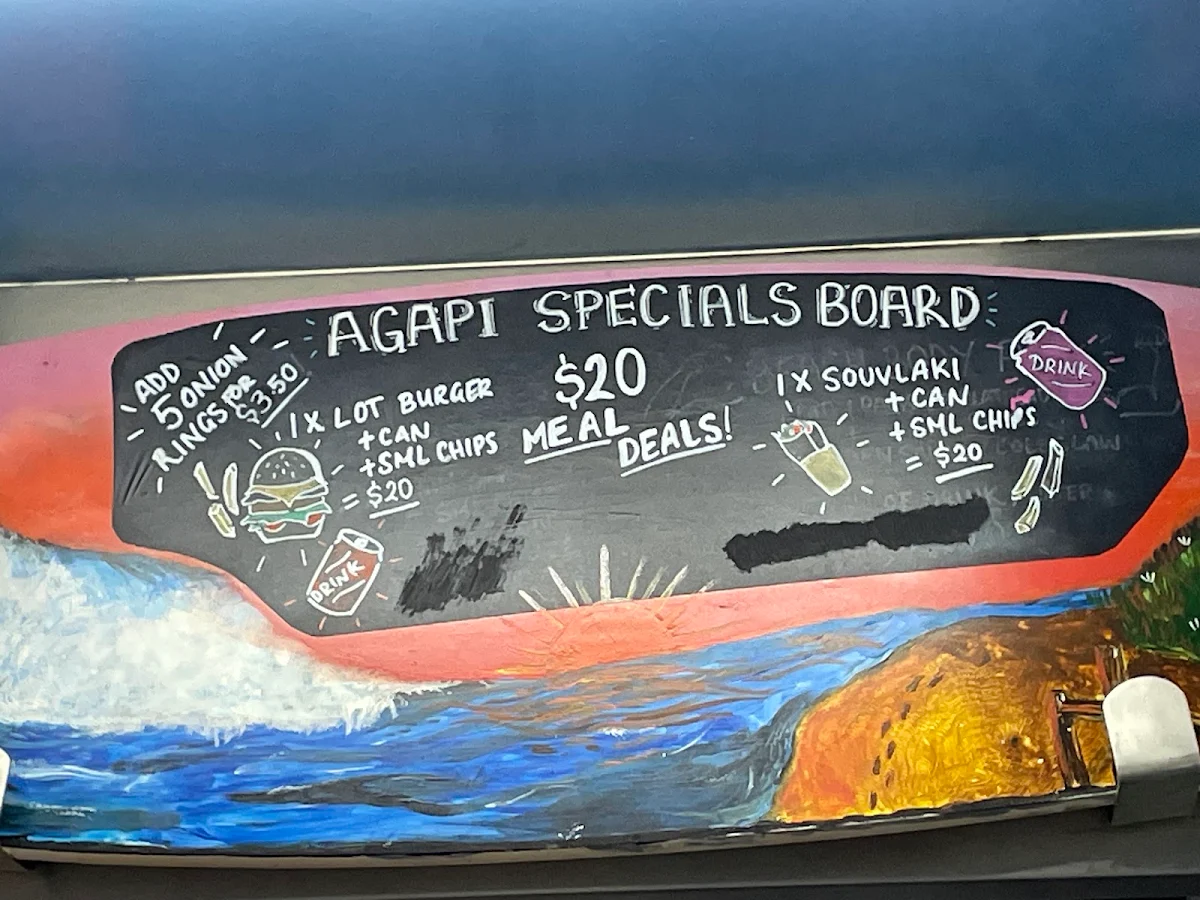 AGAPI SPECIALS BOARD
ADD
5 ONION
RINGS FOR
$3.50
1 X LOT BURGER
+ CAN
+ SML CHIPS
= $20
DRINK
$20
MEAL
DEALS!
1 X SOUVLAKI
+ CAN
+ SML CHIPS
= $20
DRINK